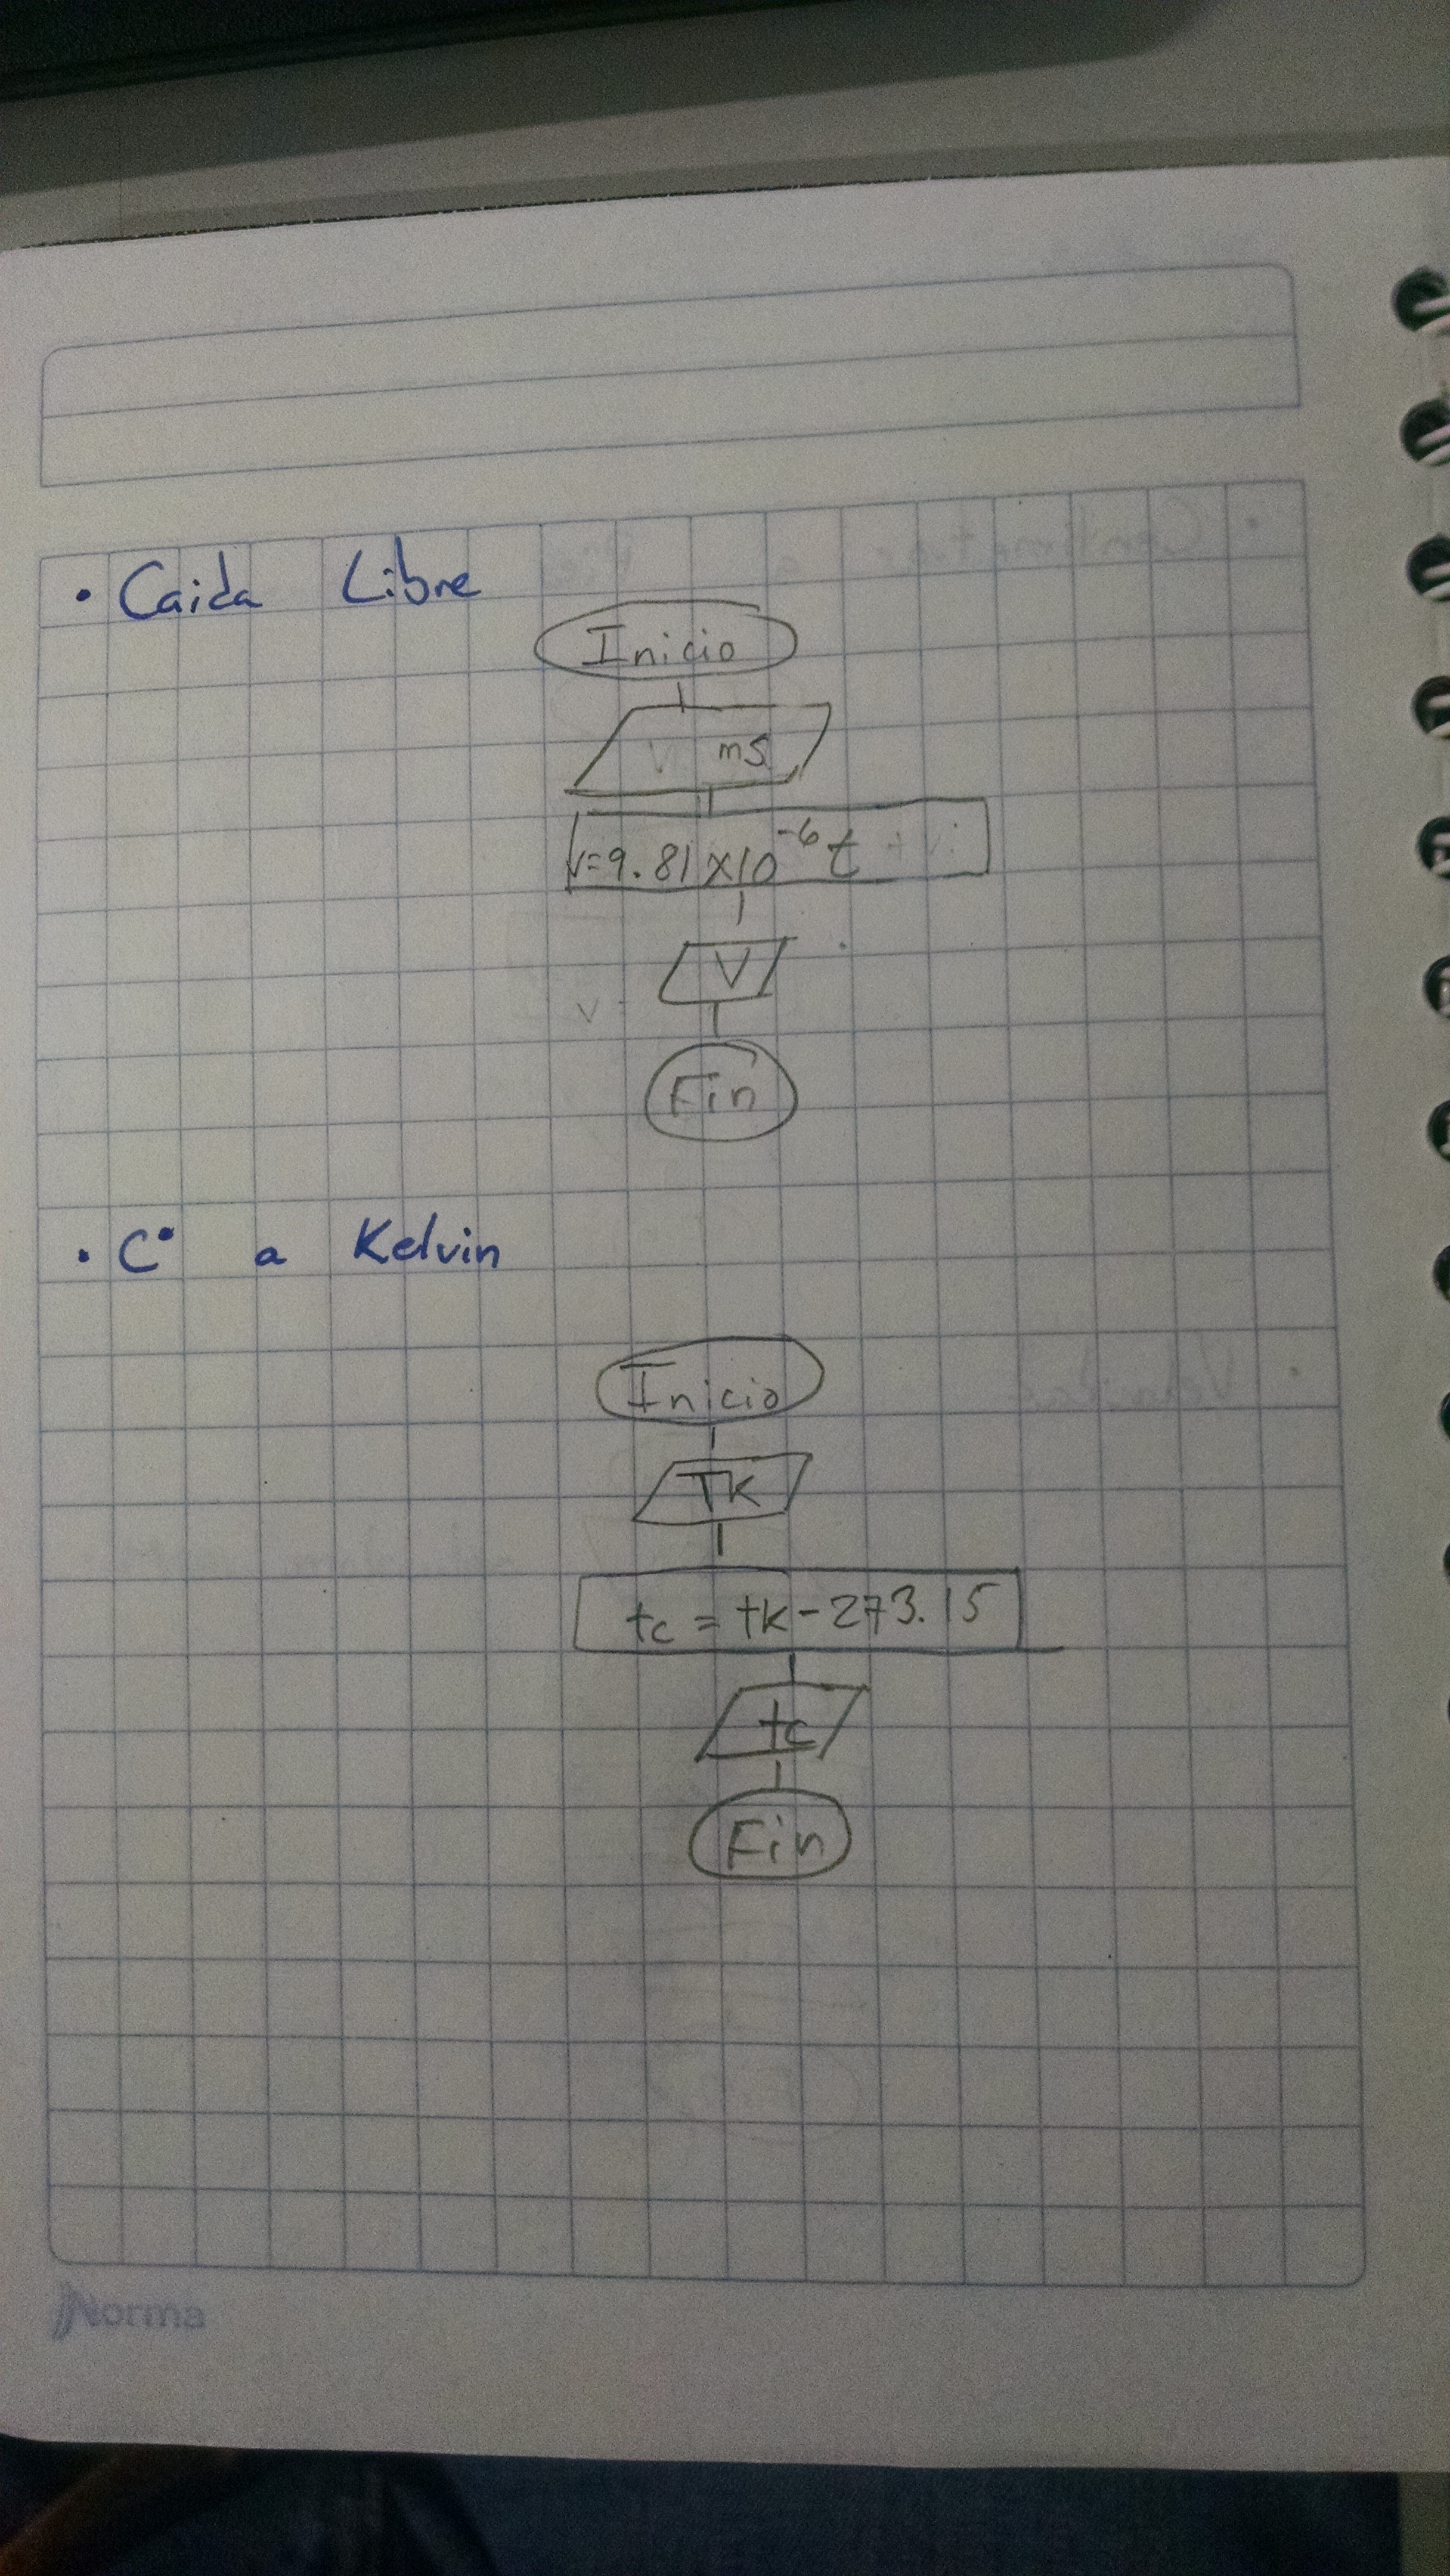 • Caida Libre
Inicio
ms
v=9.81x10^-6 t
V
Fin
• C° a Kelvin
Inicio
TK
tc = tk - 273.15
tc
Fin
Norma